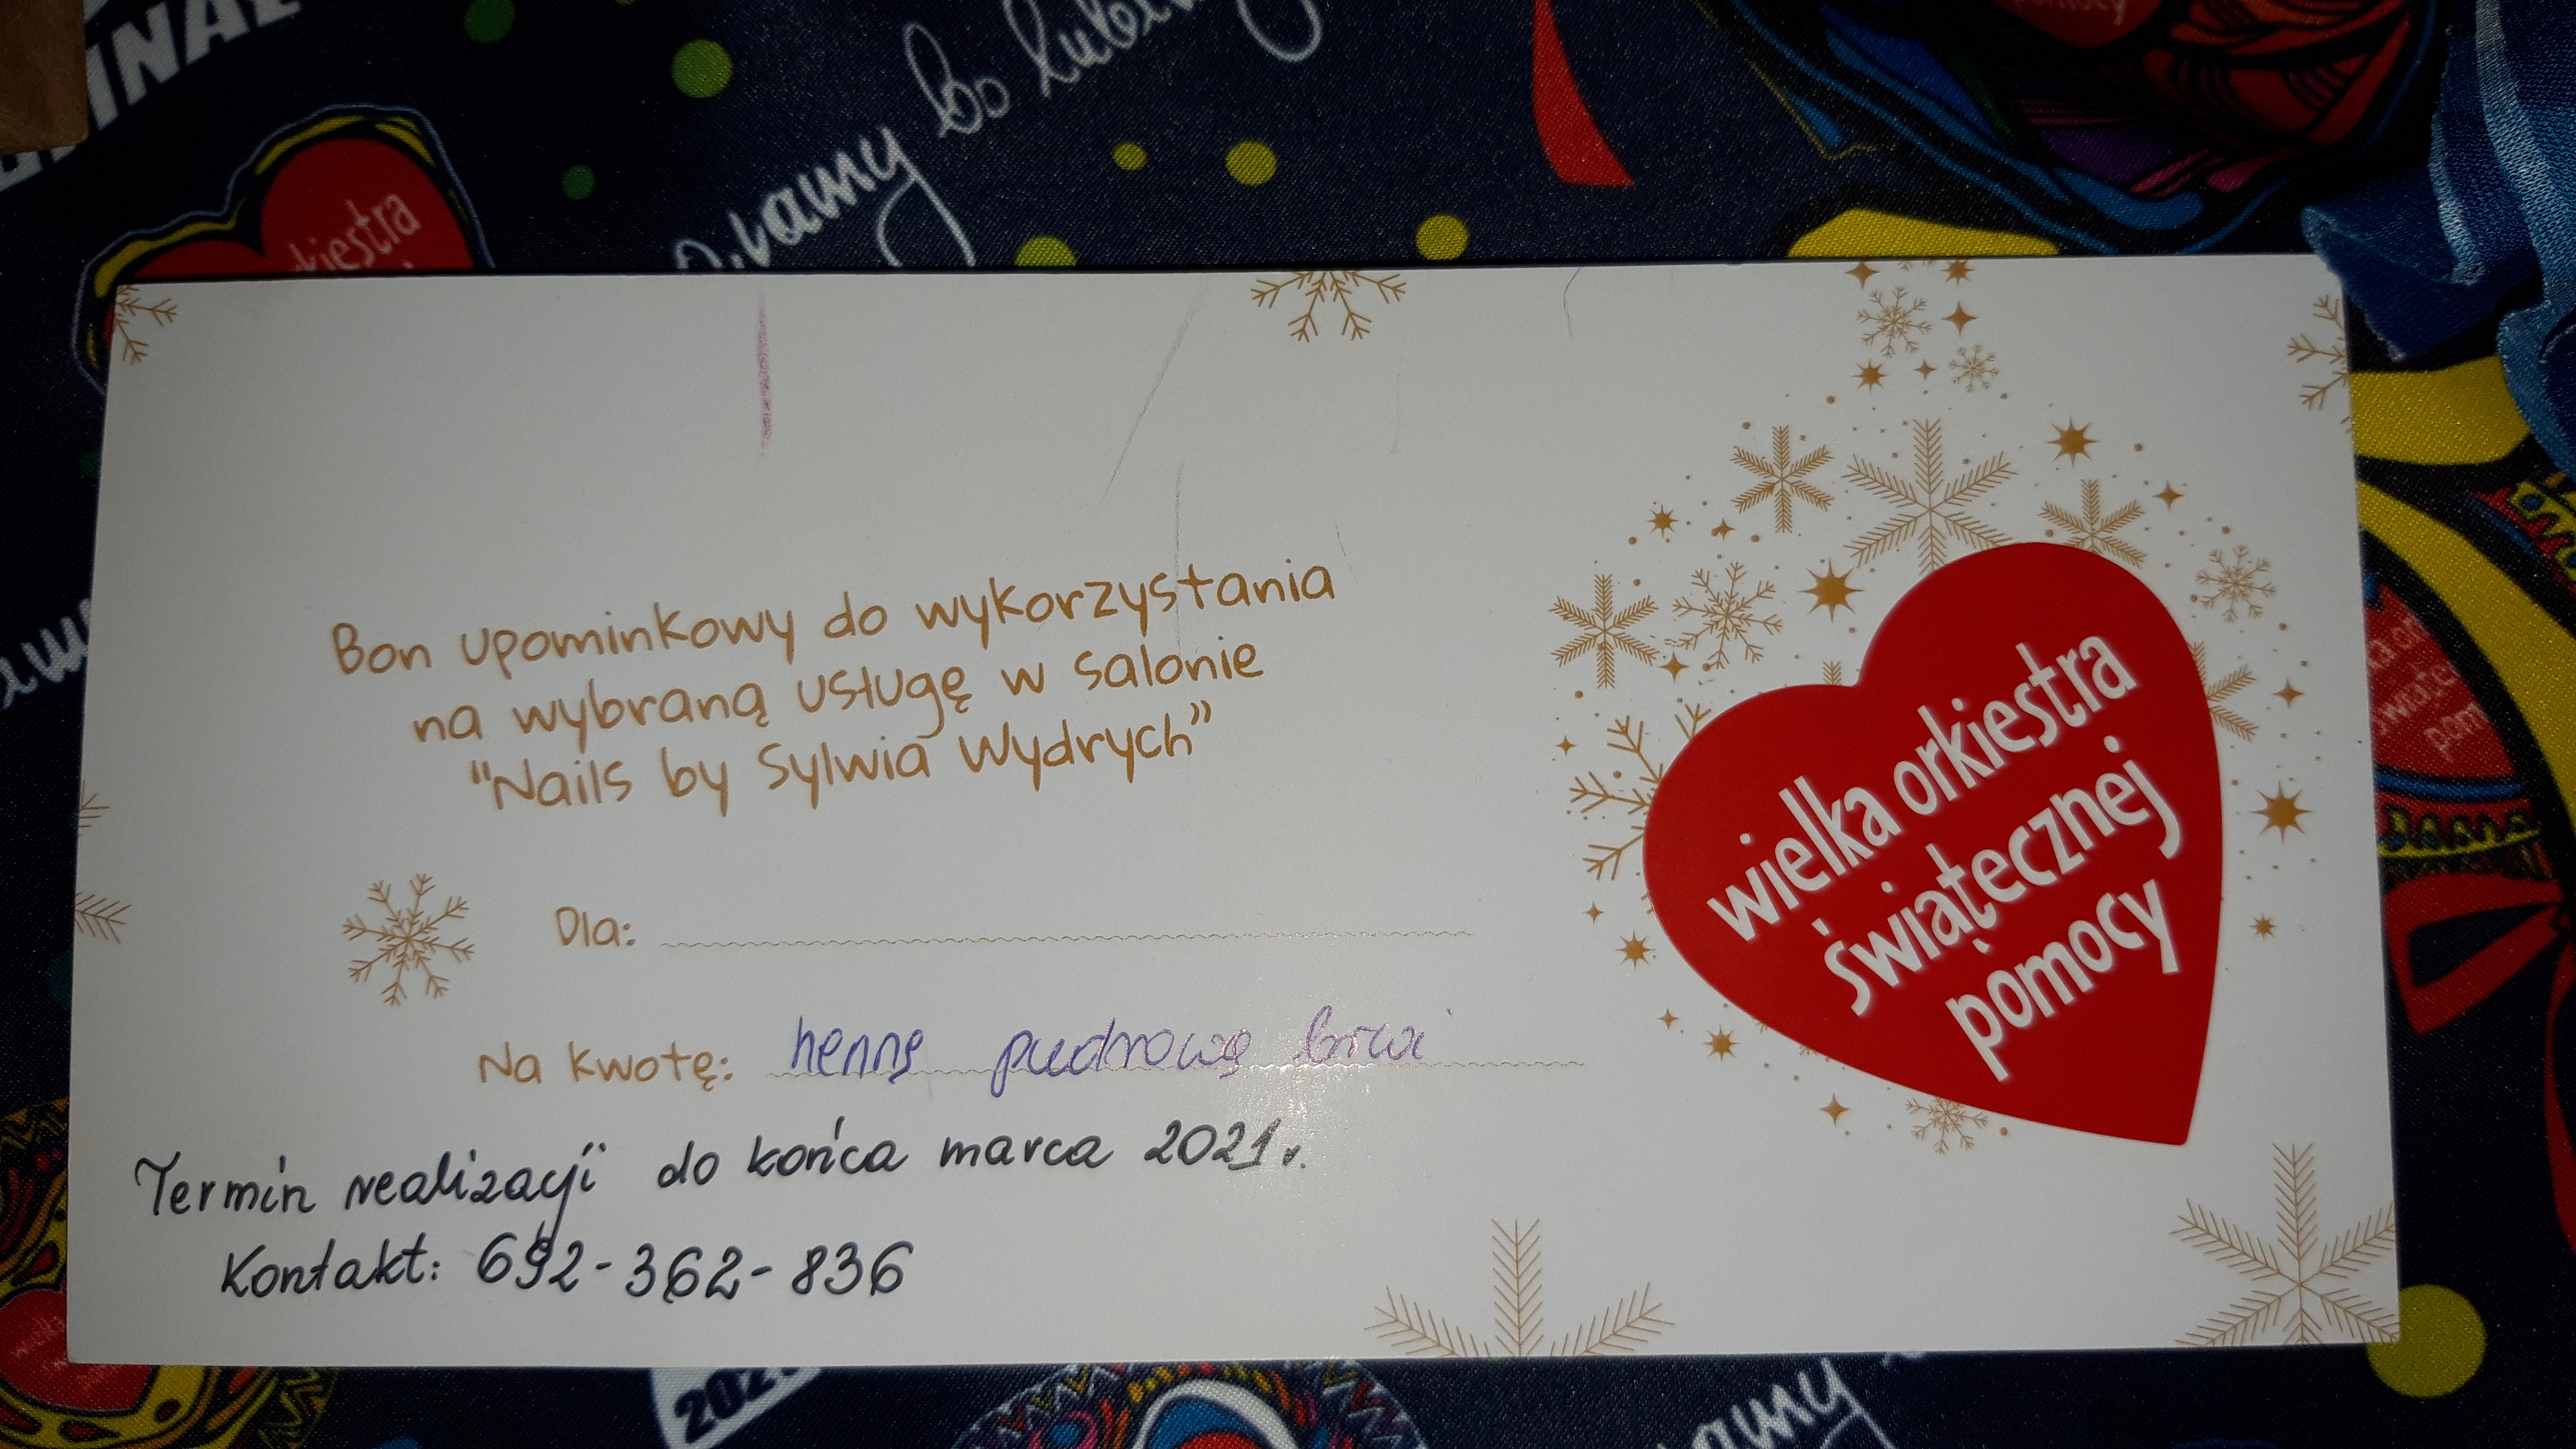 FINAŁ
Gramy
bo lubi
orkiestra
Bon upominkowy do wykorzystania
na wybraną usługę w salonie
"Nails by Sylwia Wydrych"
Dla:
Na kwotę: hennę pudrową brwi
Termin realizacji do końca marca 2021 r.
Kontakt: 692-362-836
wielka orkiestra
świątecznej
pomocy